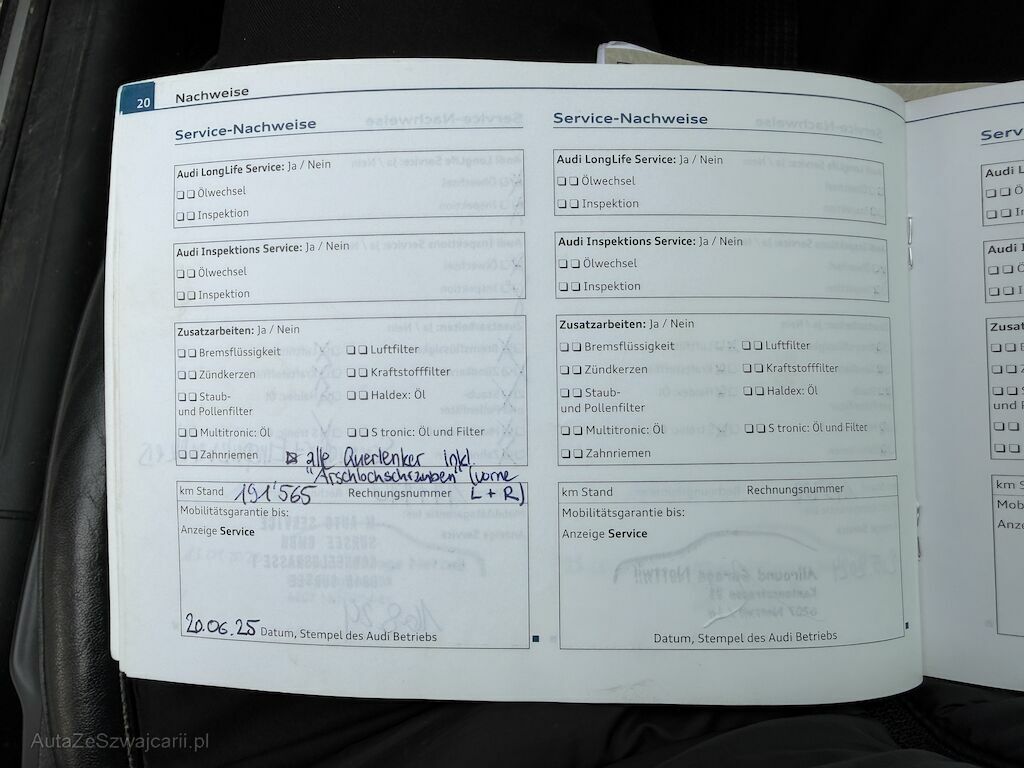 20 Nachweise
Service-Nachweise
Audi LongLife Service: Ja / Nein
Ölwechsel
Inspektion
Audi Inspektions Service: Ja / Nein
Ölwechsel
Inspektion
Zusatzarbeiten: Ja / Nein
Bremsflüssigkeit
Luftfilter
Zündkerzen
Kraftstofffilter
Staub-
und Pollenfilter
Haldex: Öl
Multitronic: Öl
S tronic: Öl und Filter
Zahnriemen
alle Querlenker inkl.
"Arschlochschrauben" (vorne
L + R)
km Stand 191'565 Rechnungsnummer
Mobilitätsgarantie bis:
Anzeige Service
20.06.25 Datum, Stempel des Audi Betriebs
Service-Nachweise
Audi LongLife Service: Ja / Nein
Ölwechsel
Inspektion
Audi Inspektions Service: Ja / Nein
Ölwechsel
Inspektion
Zusatzarbeiten: Ja / Nein
Bremsflüssigkeit
Luftfilter
Zündkerzen
Kraftstofffilter
Staub-
und Pollenfilter
Haldex: Öl
Multitronic: Öl
S tronic: Öl und Filter
Zahnriemen
km Stand Rechnungsnummer
Mobilitätsgarantie bis:
Anzeige Service
Datum, Stempel des Audi Betriebs
AutaZeSzwajcarii.pl